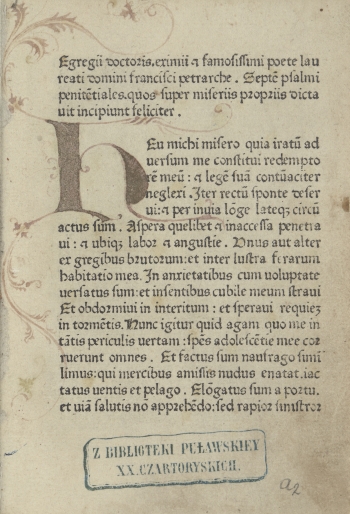 Egregii doctoris, eximii ⁊ famosissimi poete lau
reati domini francisci petrarche . Septē psalmi
penitētiales, quos super miseriis propriis dicta
uit incipiunt feliciter .
HEu michi misero quia iratū ad
uersum me constitui redempto
rē meū : ⁊ legē suā contūaciter
neglexi . Iter rectū sponte deser
ui: ⁊ per inuia lōge lateqꝫ circū
actus sum . Aspera quelibet ⁊ inaccessa penetra
ui : ⁊ ubiqꝫ labor ⁊ angustie . Unus aut alter
ex gregibus brutorum: et inter lustra ferarum
habitatio mea. In anxietatibus cum uoluptate
uersatus sum: et in sentibus cubile meum straui
Et obdormiui in interitum : et speraui requiez
in tormētis. Nunc igitur quid agam quo me in
tātis periculis uertam : spēs adolescētie mee cor
ruerunt omnes . Et factus sum naufrago simi
limus: qui mercibus amissis nudus enatat. iac
tatus uentis et pelago . Elōgatus sum a portu.
et uiā salutis nō apprehēdo: sed rapior sinistror
Z BIBLIOTEKI PUŁAWSKIEY
XX. CZARTORYSKICH.